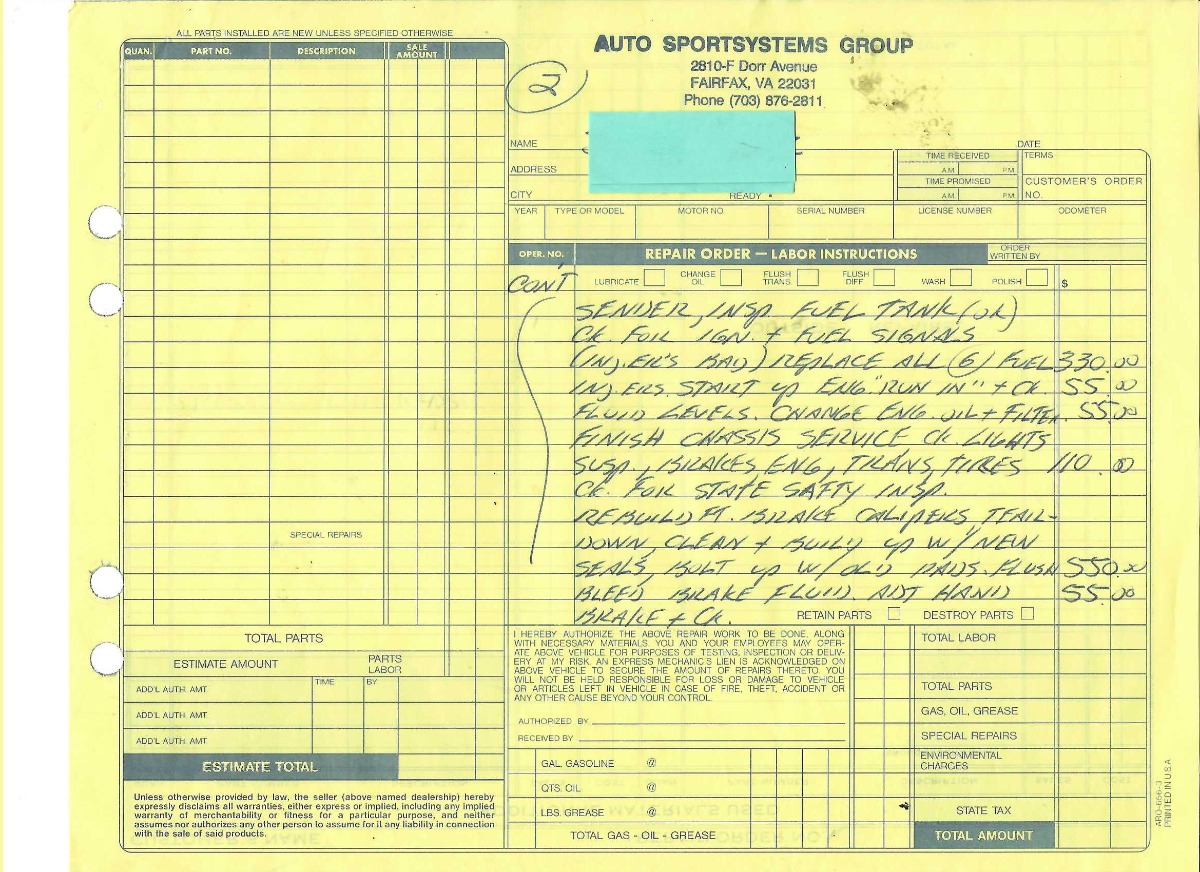 ALL PARTS INSTALLED ARE NEW UNLESS SPECIFIED OTHERWISE
QUAN. PART NO. DESCRIPTION SALE AMOUNT
2
AUTO SPORTSYSTEMS GROUP
2810-F Dorr Avenue
FAIRFAX, VA 22031
Phone (703) 876-2811
NAME DATE
ADDRESS TIME RECEIVED A.M. P.M. TERMS
CITY READY TIME PROMISED A.M. P.M. CUSTOMER'S ORDER NO.
YEAR TYPE OR MODEL MOTOR NO. SERIAL NUMBER LICENSE NUMBER ODOMETER
OPER. NO. REPAIR ORDER — LABOR INSTRUCTIONS ORDER WRITTEN BY
CON'T LUBRICATE CHANGE OIL FLUSH TRANS. FLUSH DIFF. WASH POLISH $
SENDER, INSP. FUEL TANK (OK)
CK. FOR IGN. + FUEL SIGNALS
(INJ.ER'S BAD) REPLACE ALL (6) FUEL 330.00
INJ.ERS. START UP ENG. "RUN IN" + CK. 55.00
FLUID LEVELS. CHANGE ENG. OIL + FILTER. 55.00
FINISH CHASSIS SERVICE CK. LIGHTS
SUSP., BRAKES, ENG, TRANS, TIRES 110.00
CK. FOR STATE SAFTY INSP.
REBUILD FT. BRAKE CALIPERS, TEAR-
DOWN, CLEAN + BUILD UP W/ NEW
SEALS, BOLT UP W/ OLD PADS. FLUSH 550.00
BLEED BRAKE FLUID. ADJ HAND 55.00
BRAKE + CK. RETAIN PARTS DESTROY PARTS
SPECIAL REPAIRS
TOTAL PARTS
ESTIMATE AMOUNT PARTS LABOR
TIME BY
ADD'L AUTH. AMT.
ADD'L AUTH. AMT.
ADD'L AUTH. AMT.
ESTIMATE TOTAL
Unless otherwise provided by law, the seller (above named dealership) hereby
expressly disclaims all warranties, either express or implied, including any implied
warranty of merchantability or fitness for a particular purpose, and neither
assumes nor authorizes any other person to assume for it any liability in connection
with the sale of said products.
I HEREBY AUTHORIZE THE ABOVE REPAIR WORK TO BE DONE, ALONG
WITH NECESSARY MATERIALS. YOU AND YOUR EMPLOYEES MAY OPER-
ATE ABOVE VEHICLE FOR PURPOSES OF TESTING, INSPECTION OR DELIV-
ERY AT MY RISK. AN EXPRESS MECHANIC'S LIEN IS ACKNOWLEDGED ON
ABOVE VEHICLE TO SECURE THE AMOUNT OF REPAIRS THERETO. YOU
WILL NOT BE HELD RESPONSIBLE FOR LOSS OR DAMAGE TO VEHICLE
OR ARTICLES LEFT IN VEHICLE IN CASE OF FIRE, THEFT, ACCIDENT OR
ANY OTHER CAUSE BEYOND YOUR CONTROL.
AUTHORIZED BY
RECEIVED BY
GAL. GASOLINE @
QTS. OIL @
LBS. GREASE @
TOTAL GAS - OIL - GREASE
TOTAL LABOR
TOTAL PARTS
GAS, OIL, GREASE
SPECIAL REPAIRS
ENVIRONMENTAL CHARGES
STATE TAX
TOTAL AMOUNT
ARO-656-3
PRINTED IN U.S.A.